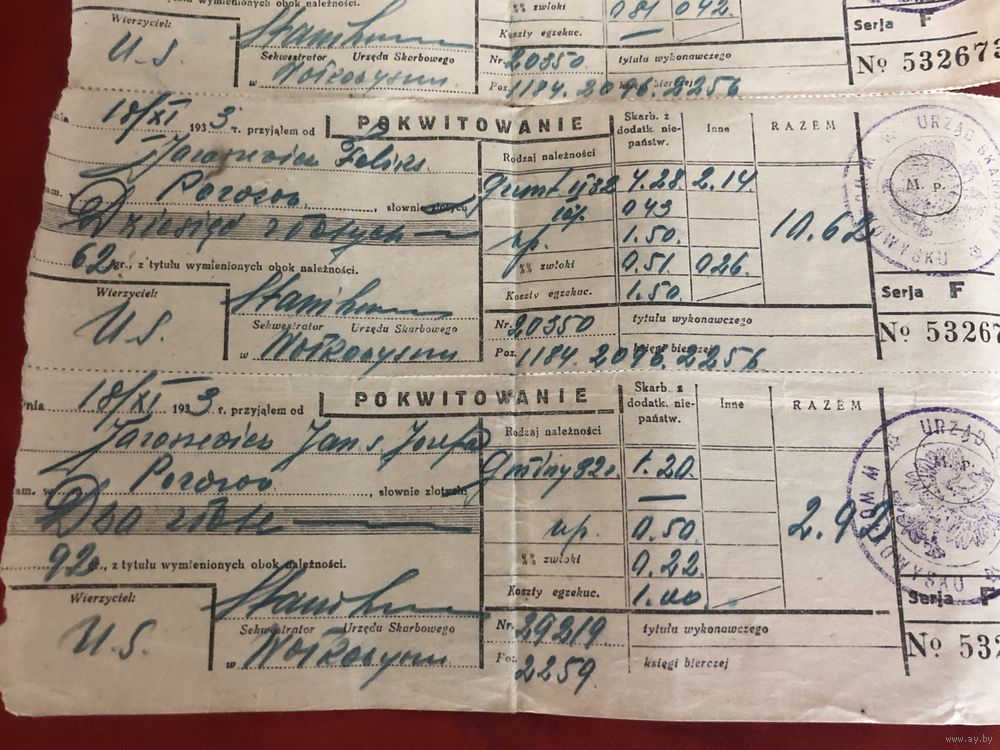 wymienionych obok należności.
%% zwłoki 0.81 0.42.
Koszty egzekuc. —
Serja F
Wierzyciel:
U.S.
Sekwestrator Urzędu Skarbowego
w Wołkowysku
Nr. 20350 tytułu wykonawczego
Poz. 1184. 2096. 2256
№ 532673
dnia 18/XI 1933 r. przyjąłem od
POKWITOWANIE
Jaroszewicz Feliks.
zam. w Porosow, słownie złotych
Dziesięć złotych —
62 gr., z tytułu wymienionych obok należności.
Rodzaj należności
Skarb. z dodatk. nie-państw.
Inne
RAZEM
grunt II 32 4.28 2.14
0.43
up. 1.50.
%% zwłoki 0.51 0.26.
Koszty egzekuc. 1.50.
10.62
M. p.
Serja F
Wierzyciel:
U.S.
Sekwestrator Urzędu Skarbowego
w Wołkowysku
Nr. 20350 tytułu wykonawczego
Poz. 1184. 2096. 2256 księgi bierczej
№ 53267
dnia 18/XI 1933 r. przyjąłem od
POKWITOWANIE
Jaroszewicz Jan s. Józefa
zam. w Porosow, słownie złotych:
Dwa złote —
92 gr., z tytułu wymienionych obok należności.
Rodzaj należności
Skarb. z dodatk. nie-państw.
Inne
RAZEM
Gminny 32 r. 1.20
—
up. 0.50
%% zwłoki 0.22
Koszty egzekuc. 1.00
2.92
URZĄD
M. p.
Serja F
Wierzyciel:
U.S.
Sekwestrator Urzędu Skarbowego
w Wołkowysku
Nr. 29219 tytułu wykonawczego
Poz. 2259. księgi bierczej
№ 532
www.ay.by